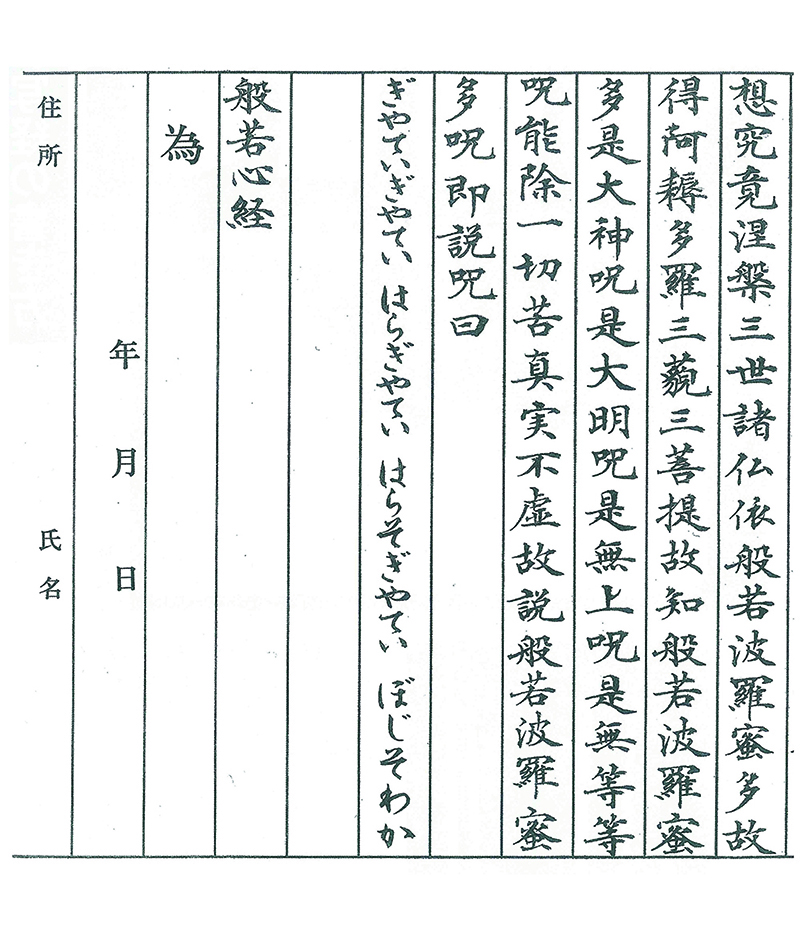 想究竟涅槃三世諸仏依般若波羅蜜多故
得阿耨多羅三藐三菩提故知般若波羅蜜
多是大神呪是大明呪是無上呪是無等等
呪能除一切苦真実不虚故説般若波羅蜜
多呪即説呪曰
ぎやていぎやてい はらぎやてい はらそぎやてい ぼじそわか
般若心経
為
年 月 日
住所 氏名